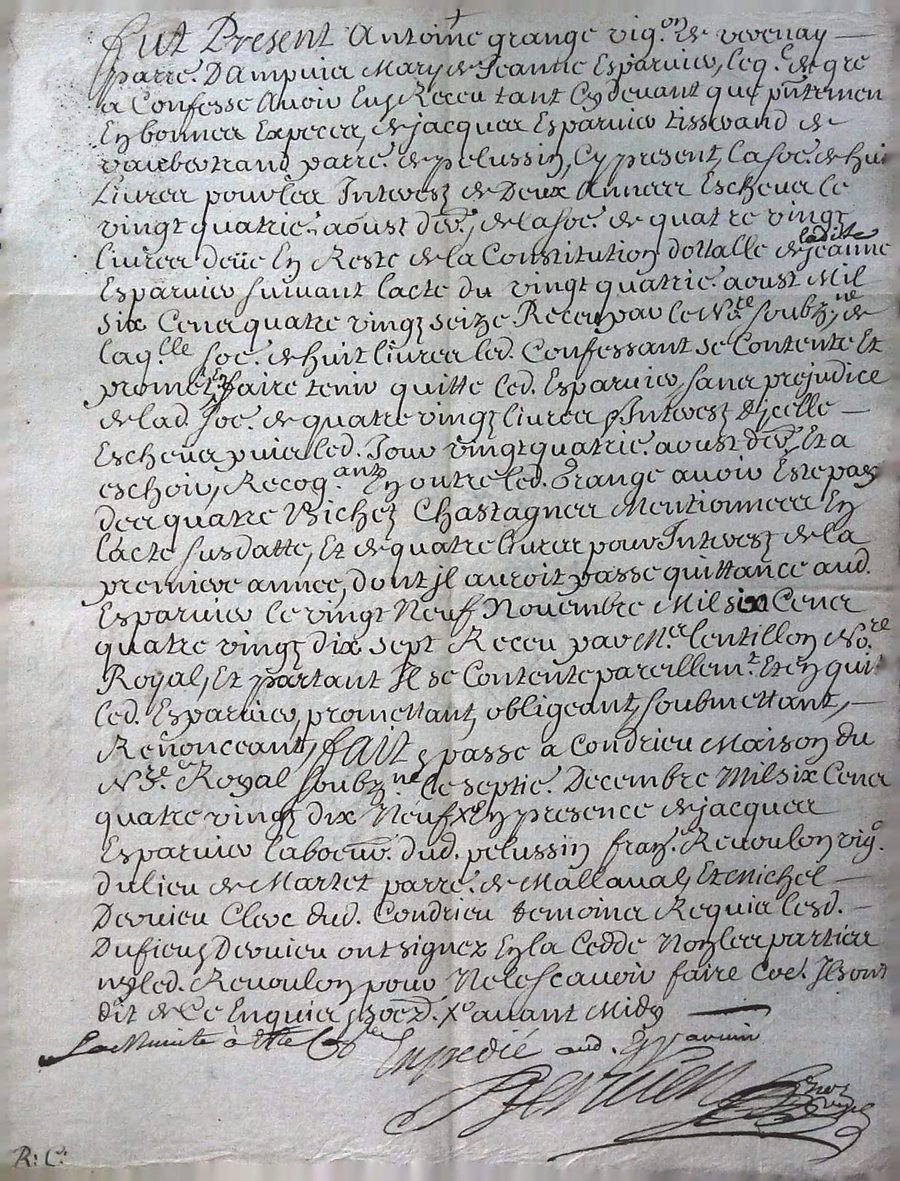 fut Present Antoine grange vig.on de verenay
parre. Dampuis Mary de Jeanne Esparvier, leq. de gré
a Confesse Avoir Eu, Receu tant Cy devant que pntemen
En bonnes Especes, de jacques Esparvier tisserand de
parre. de pelussin, Cy present, la soe. de hui
Livres pour les Interestz de Deux Annees Escheues le
vingt quatrie. aoust der., de la soe. de quatre vingt
livres deüe En Reste de la Constitution dottalle de ladite jeanne
Esparvier suivant lacte du vingt quatrie. aoust Mil
six Cens quatre vingtz seitze Receu par le No.re soubz.ne de
laq.lle soe. de huit livres led. Confessant se Contente Et
promet En faire tenir quitte led. Esparvier, sans prejudice
de lad. soe. de quatre vingtz livres & Interestz d'jcelle
Escheus puis led. Jour vingt quatrie. aoust der. Et a
eschoir, Recog.ant En outre led. Grange avoir Este paye
des quatre Bichetz Chastagnes Mentionnees En
lacte susdatté, Et de quatre livres pour Interestz de la
premiere année, dont jl auroit passé quittance aud.
Esparvier le vingt Neuf Novembre Mil six Cens
quatre vingtz dix sept Receu par M.e lentillon No.re
Royal, Et partant Il se Contente pareillem.t Et en quit
led. Esparvier, promettant, obligeant, soubmettant,
Renonceant, fait & passé a Condrieu Maison du
No.re Royal soubz.né le septie. Decembre Mil six Cens
quatre vingtz dix Neuf En presence de jacques
Esparvier laboeur. dud. pelussin fran. Revoulon vig.
du lieu de Marzet parre. de Mallaval, Et Michel
Dervieu Clerc dud. Condrieu temoins Requis lesd.
Dufieu, Dervieu ont signez En la Cedde Non les parties
ny led. Revoulon pour Ne le scavoir faire Coe. Ils ont
dit de Ce Enquis & avant Midy
La Minute à Co
Expedié aud. Esparvier
Dervieu
R: C: